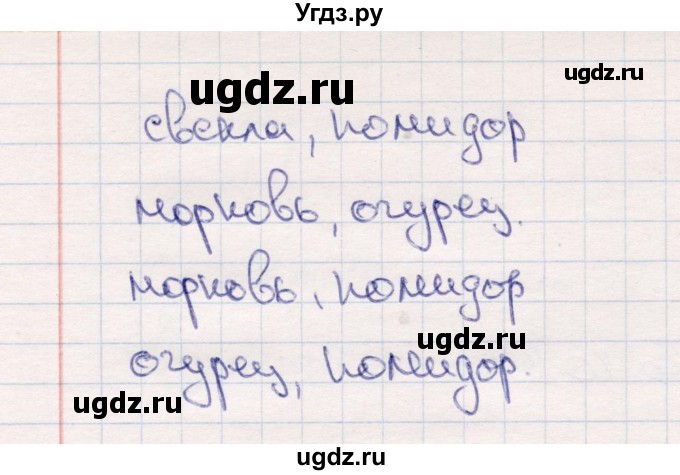 Угдз.ру
ugdz.ru
ugdz.ru
свекла, помидор
ugdz.ru
морковь, огурец.
морковь, помидор
ugdz.ru
огурец, помидор.
ugdz.ru
ugdz.ru